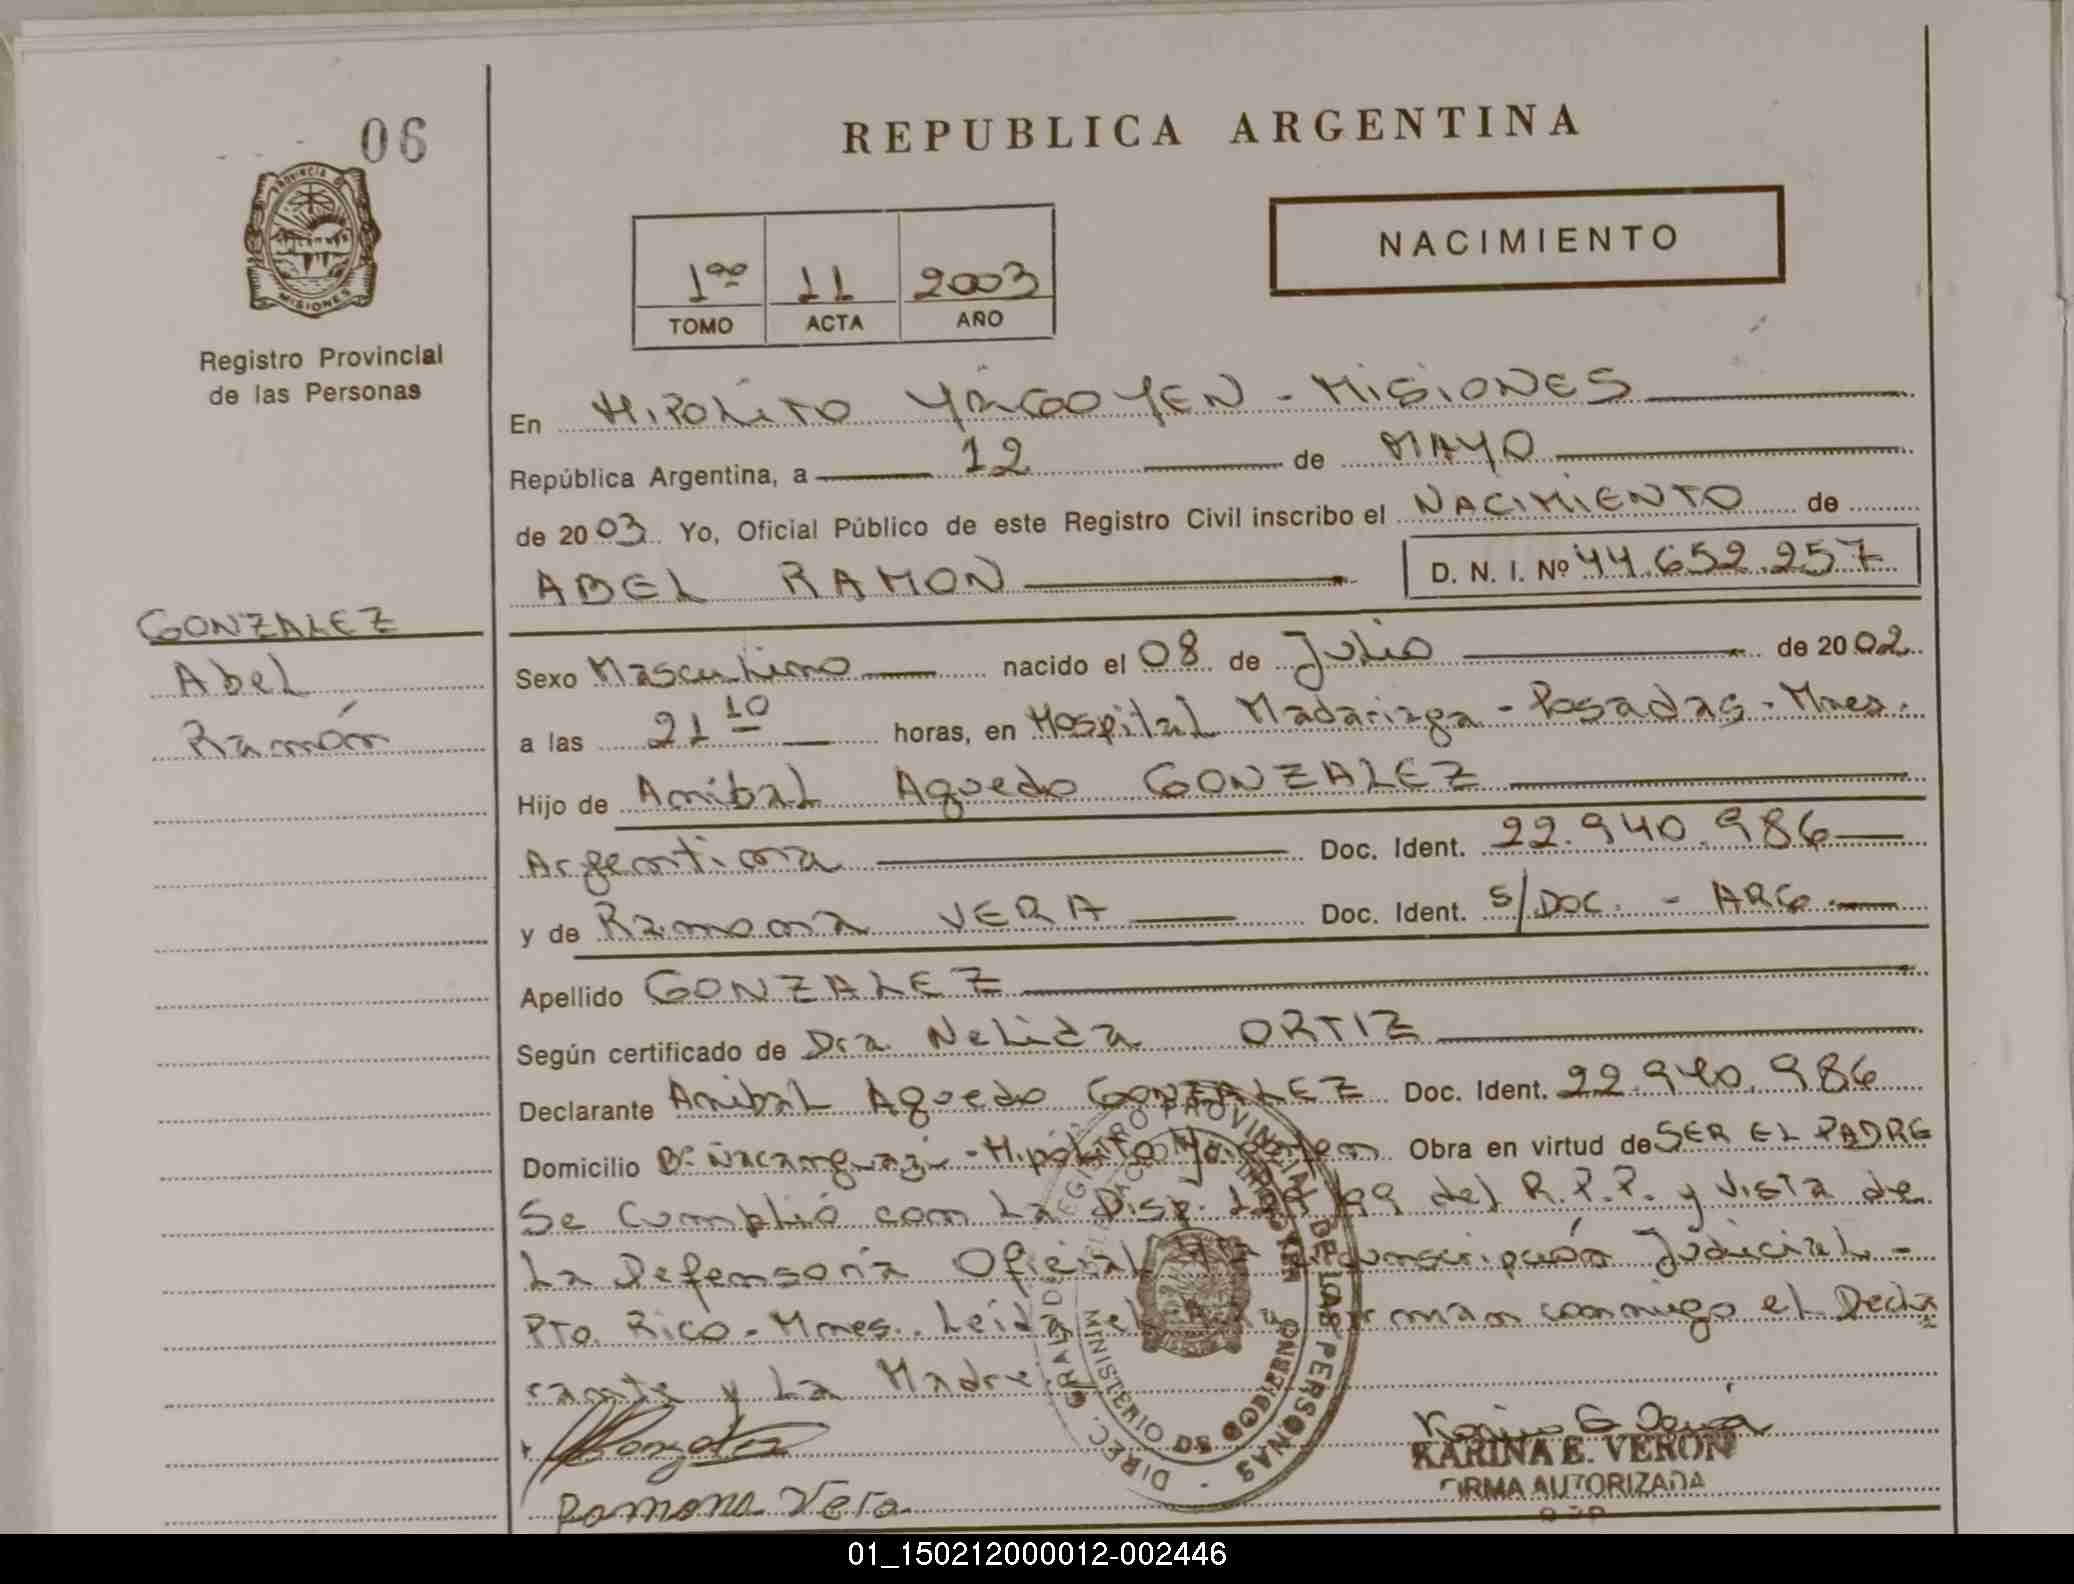 06
REPUBLICA ARGENTINA
PROVINCIA D
MISIONES
NACIMIENTO
1ro 11 2003
TOMO ACTA AÑO
Registro Provincial
de las Personas
En HIPÓLITO YRIGOYEN - MISIONES
República Argentina, a 12 de MAYO
de 2003 Yo, Oficial Público de este Registro Civil inscribo el NACIMIENTO de
ABEL RAMON D. N. I. Nº 44.652.257
GONZALEZ
Abel
Ramón
Sexo Masculino nacido el 08 de Julio de 2002
a las 21 10 horas, en Hospital Madariaga - Posadas - Mnes.
Hijo de Anibal Aguedo GONZALEZ
Argentina Doc. Ident. 22.940.986
y de Ramona VERA Doc. Ident. S/DOC. - ARG.
Apellido GONZALEZ
Según certificado de Dra. Nelida ORTIZ
Declarante Anibal Aguedo GONZALEZ Doc. Ident. 22.940.986
Domicilio Bº Hipólito Yrigoyen Obra en virtud de SER EL PADRE
Se Cumplió con La Disp. 99 del R.P.P. y Vista de
La Defensoría Oficial Circunscripción Judicial -
Pto. Rico - Mnes. Leída el Acta firman conmigo el Decla
rante y La Madre.
DIREC. GRAL. DEL REGISTRO PROVINCIAL DE LAS PERSONAS
MINISTERIO DE GOBIERNO
Gonzalez
Ramona Vera
KARINA E. VERON
FIRMA AUTORIZADA
01_150212000012-002446